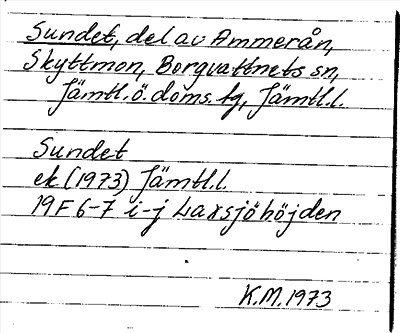 Sundet, del av Ammerån,
Skyttmon, Borgvattnets sn,
Jämtl.ö.doms.tg, Jämtl.l.
Sundet
ek (1973) Jämtl.l.
19F 6-7 i-j Laxsjöhöjden
K.M.1973